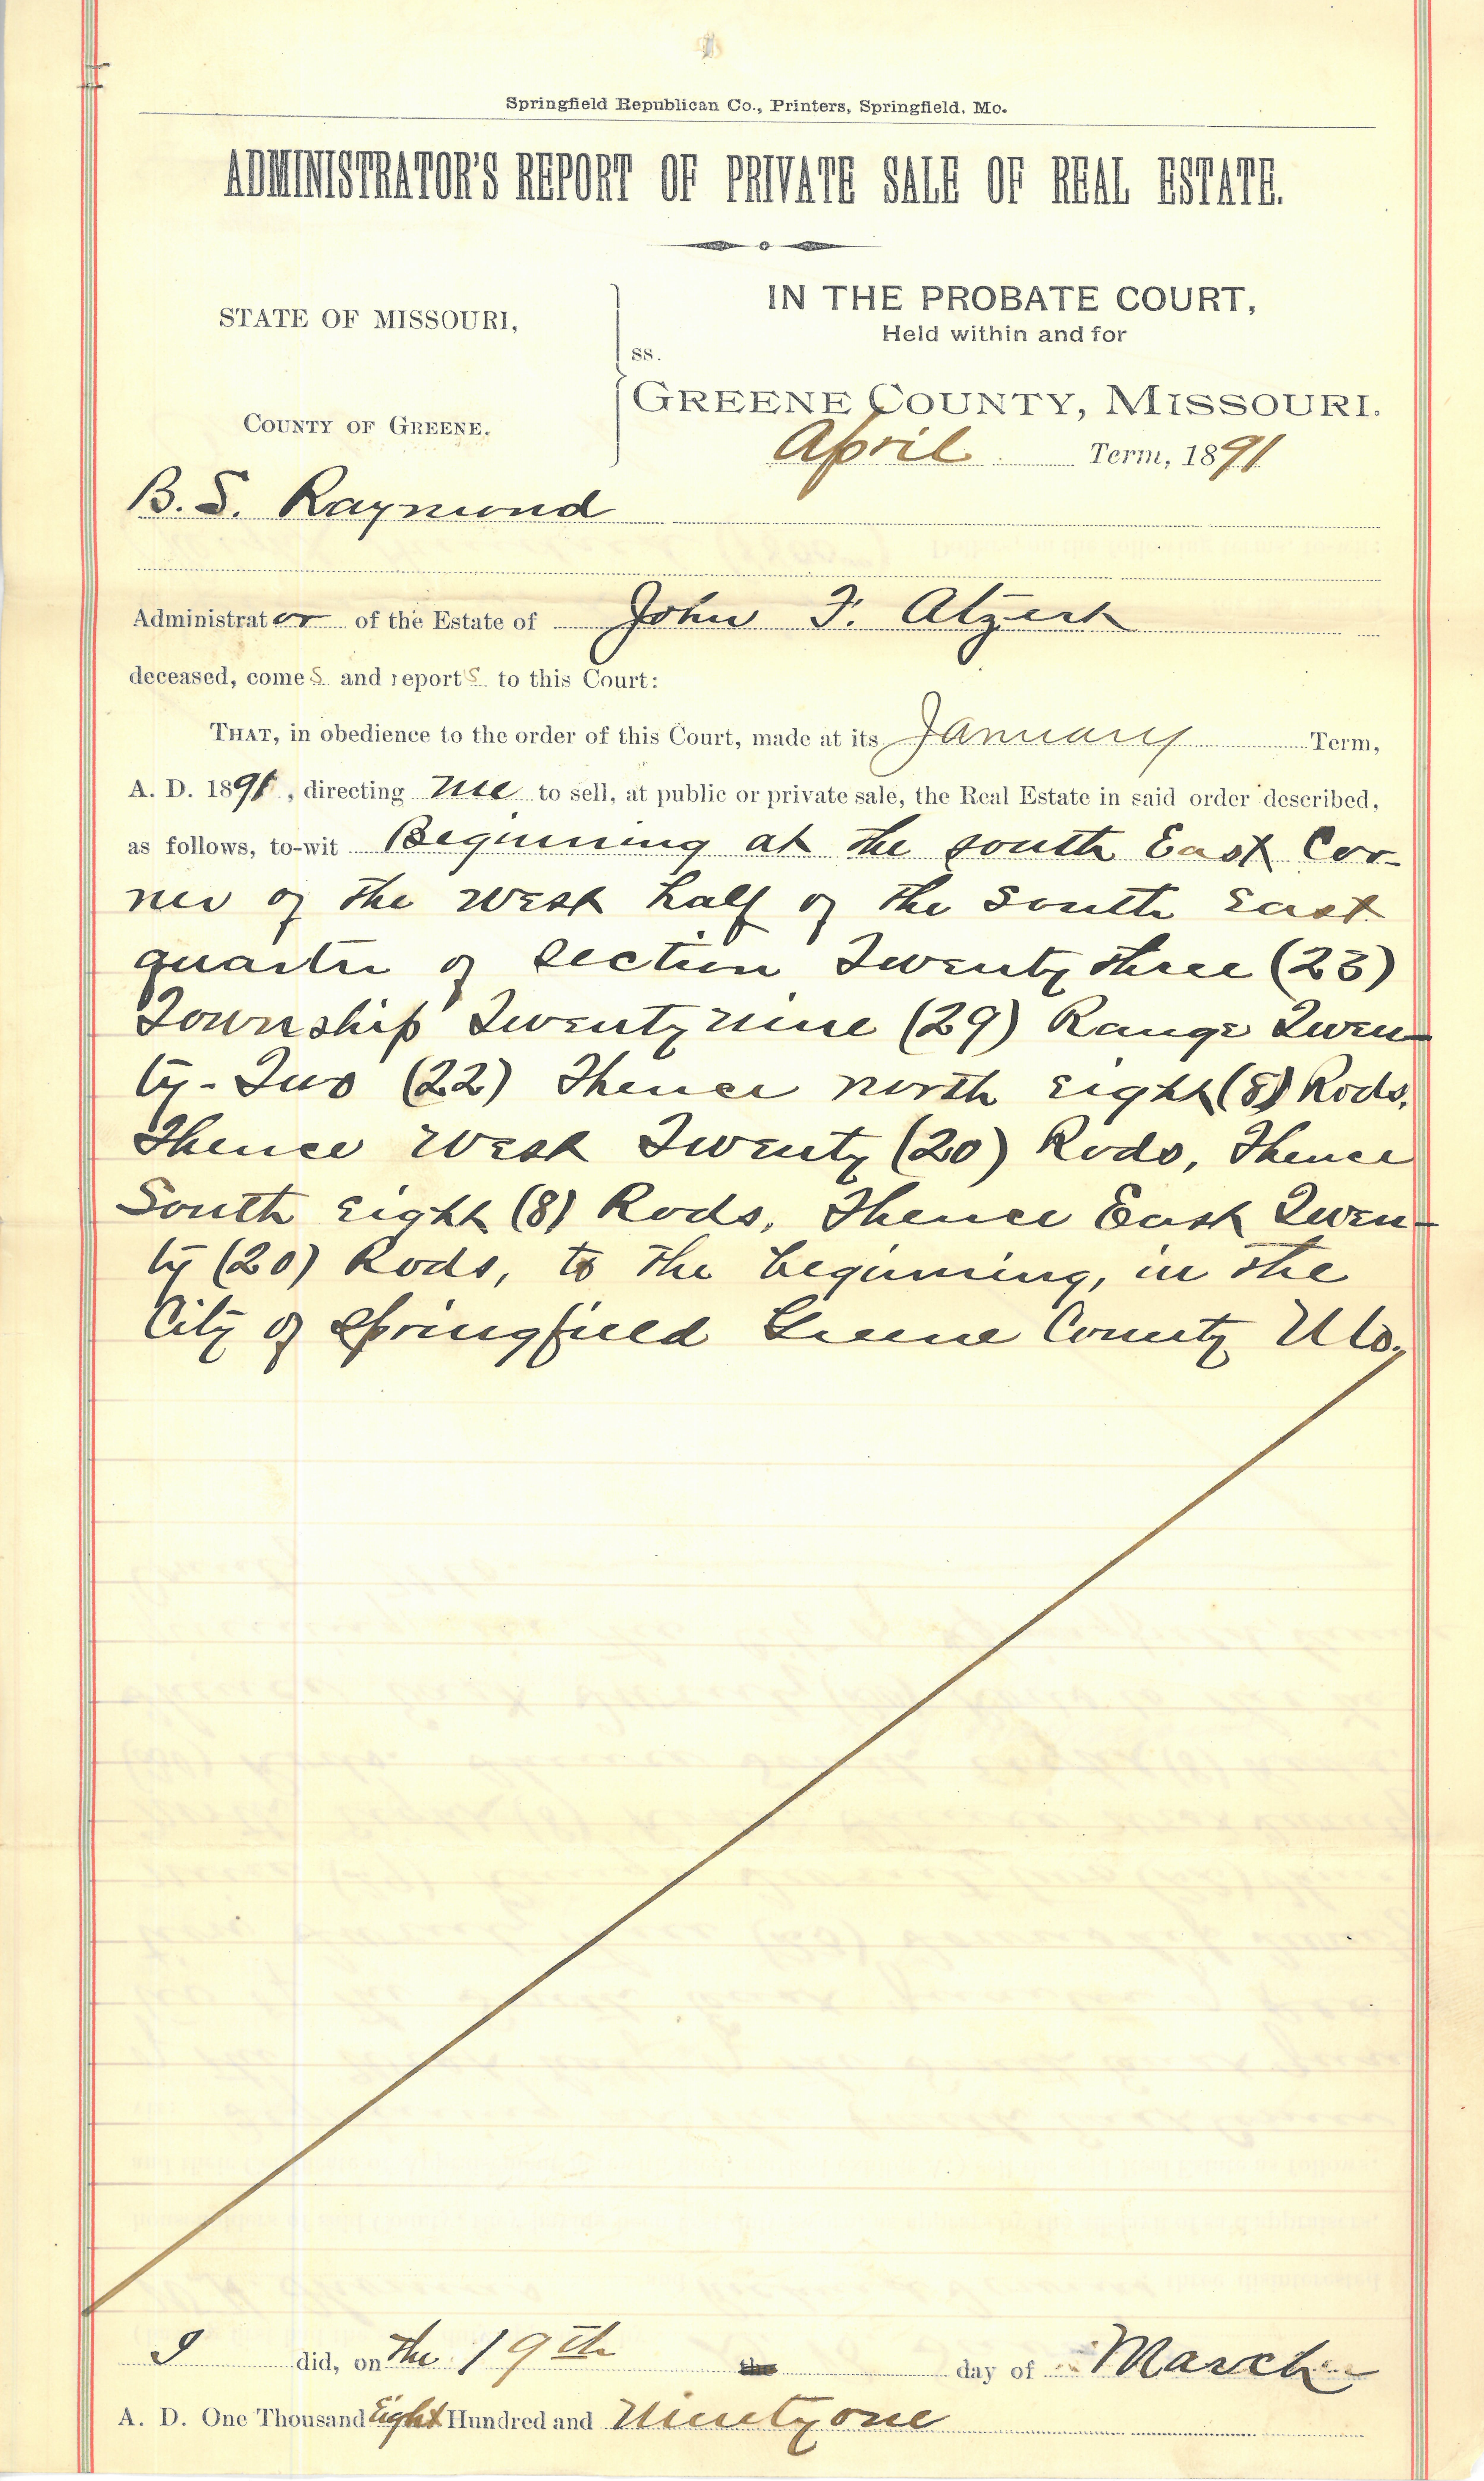 Springfield Republican Co., Printers, Springfield, Mo.
ADMINISTRATOR'S REPORT OF PRIVATE SALE OF REAL ESTATE.
STATE OF MISSOURI,
COUNTY OF GREENE.
ss.
IN THE PROBATE COURT,
Held within and for
GREENE COUNTY, MISSOURI.
April Term, 1891
B. S. Raymond
Administrator of the Estate of John F. Atzert
deceased, comes and reports to this Court:
THAT, in obedience to the order of this Court, made at its January Term,
A. D. 1891, directing me to sell, at public or private sale, the Real Estate in said order described,
as follows, to-wit Beginning at the south East Cor-
ner of the west half of the South East
quarter of section Twenty three (23)
Township Twenty nine (29) Range Twen-
ty-Two (22) Thence north eight (8) Rods,
Thence west Twenty (20) Rods, Thence
South eight (8) Rods, Thence East Twen-
ty (20) Rods, to the beginning, in the
City of Springfield Greene County Mo.
I did, on the 19th the day of March
A. D. One Thousand Eight Hundred and Ninety one